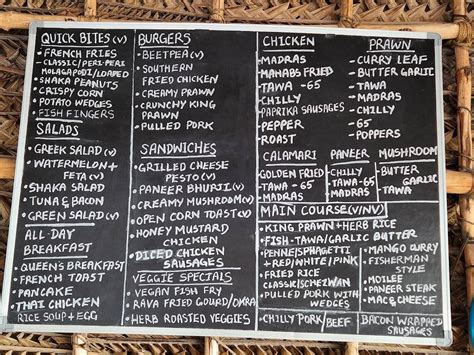 QUICK BITES (V)
• FRENCH FRIES
- CLASSIC/PERI-PERI
MOLAGAPODI/LOADED
• SHAKA PEANUTS
• CRISPY CORN
• POTATO WEDGES
• FISH FINGERS
SALADS
• GREEK SALAD (V)
• WATERMELON +
FETA (V)
• SHAKA SALAD
• TUNA & BACON
• GREEN SALAD (V)
ALL-DAY
BREAKFAST
• QUEEN'S BREAKFAST
• FRENCH TOAST
• PANCAKE
• THAI CHICKEN
RICE SOUP + EGG
BURGERS
• BEETPEA (V)
• SOUTHERN
FRIED CHICKEN
• CREAMY PRAWN
• CRUNCHY KING
PRAWN
• PULLED PORK
SANDWICHES
• GRILLED CHEESE
PESTO (V)
• PANEER BHURJI (V)
• CREAMY MUSHROOM (V)
• OPEN CORN TOAST (V)
• HONEY MUSTARD
CHICKEN
• DICED CHICKEN
SAUSAGES
VEGGIE SPECIALS
• VEGAN FISH FRY
• RAVA FRIED GOURD/OKRA
• HERB ROASTED VEGGIES
CHICKEN
• MADRAS
• MANABS FRIED
• TAWA - 65
• CHILLY
PAPRIKA SAUSAGES
• PEPPER
• ROAST
PRAWN
• CURRY LEAF
• BUTTER GARLIC
• TAWA
• MADRAS
• CHILLY
• 65
• POPPERS
CALAMARI
GOLDEN FRIED
• TAWA - 65
MADRAS
PANEER
• CHILLY
TAWA-65
MADRAS
MUSHROOM
BUTTER
GARLIC
TAWA
MAIN COURSE (V/NV)
• KING PRAWN + HERB RICE
• FISH - TAWA/GARLIC BUTTER
• PENNE/SPHAGETTI
+ RED/WHITE/PINK
• FRIED RICE
CLASSIC/SCHEZWAN
• PULLED PORK WITH
WEDGES
• MANGO CURRY
• FISHERMAN
STYLE
• MOILEE
• PANEER STEAK
• MAC & CHEESE
• CHILLY PORK/BEEF
BACON WRAPPED
SAUSAGES